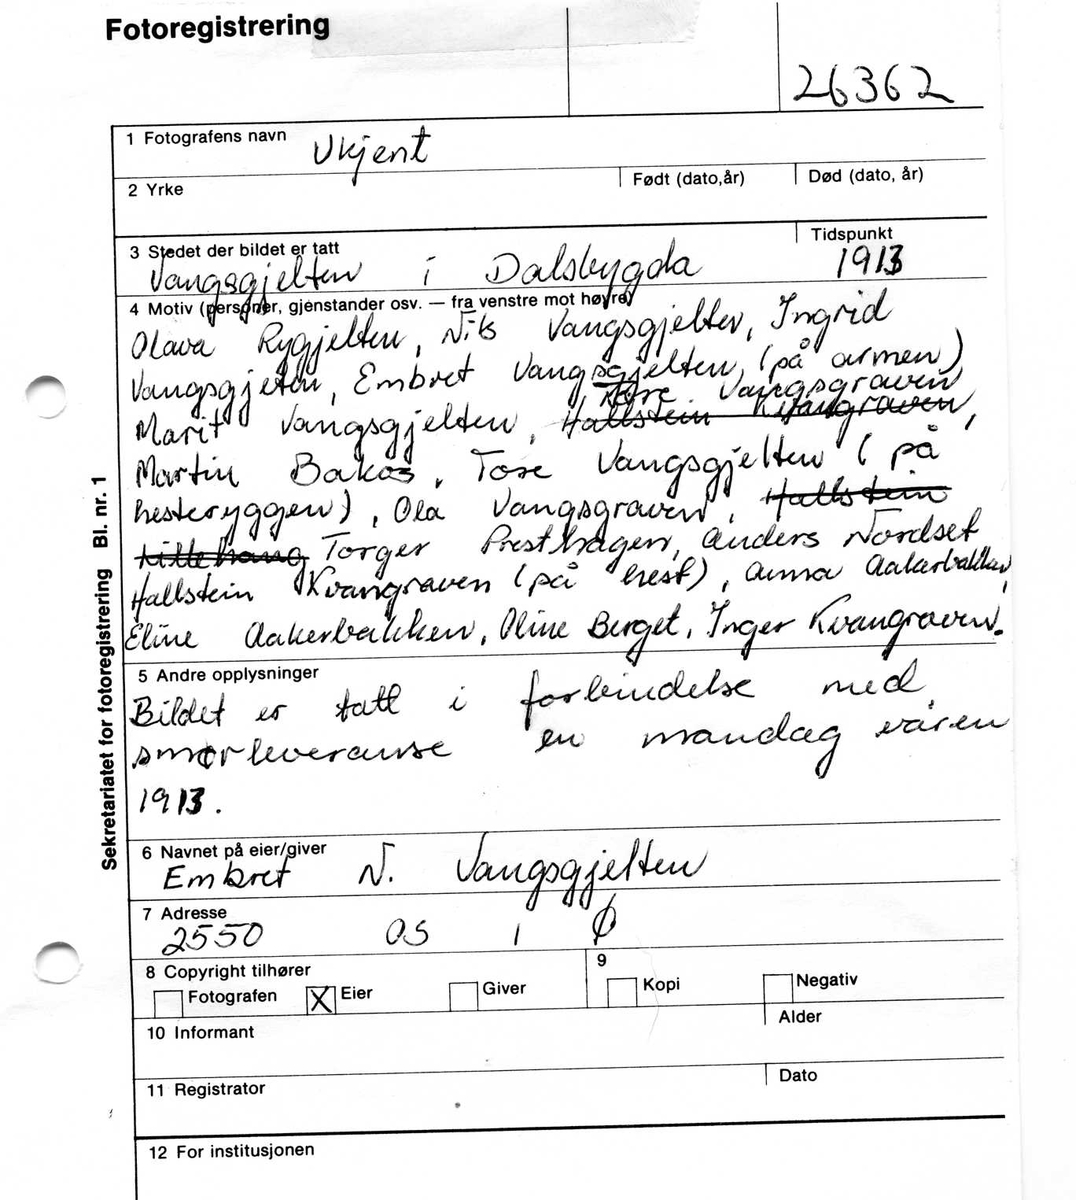 Fotoregistrering
26362
1 Fotografens navn Ukjent
2 Yrke Født (dato,år) Død (dato, år)
3 Stedet der bildet er tatt Tidspunkt
Vangsgjelten i Dalsbygda 1913
4 Motiv (personer, gjenstander osv. — fra venstre mot høyre)
Olava Rygjelten, Nils Vangsgjelten, Ingrid
Vangsgjelten, Embret Vangsgjelten, (på armen)
Tore Vangsgraven
Marit Vangsgjelten, Hallstein Kvangraven,
Martin Bakos, Tore Vangsgjelten (på
hesteryggen), Ola Vangsgraven, Hallstein
Lillehaug Torger Presthagen, Anders Nordset
Hallstein Kvangraven (på hest), Anna Aakerbakken,
Eline Aakerbakken, Oline Berget, Inger Kvangraven.
5 Andre opplysninger
Bildet er tatt i forbindelse med
smørleveranse en mandag våren
1913.
6 Navnet på eier/giver
Embret N. Vangsgjelten
7 Adresse
2550 OS I Ø
8 Copyright tilhører 9
Fotografen X Eier Giver Kopi Negativ
10 Informant Alder
11 Registrator Dato
12 For institusjonen
Sekretariatet for fotoregistrering Bl. nr. 1